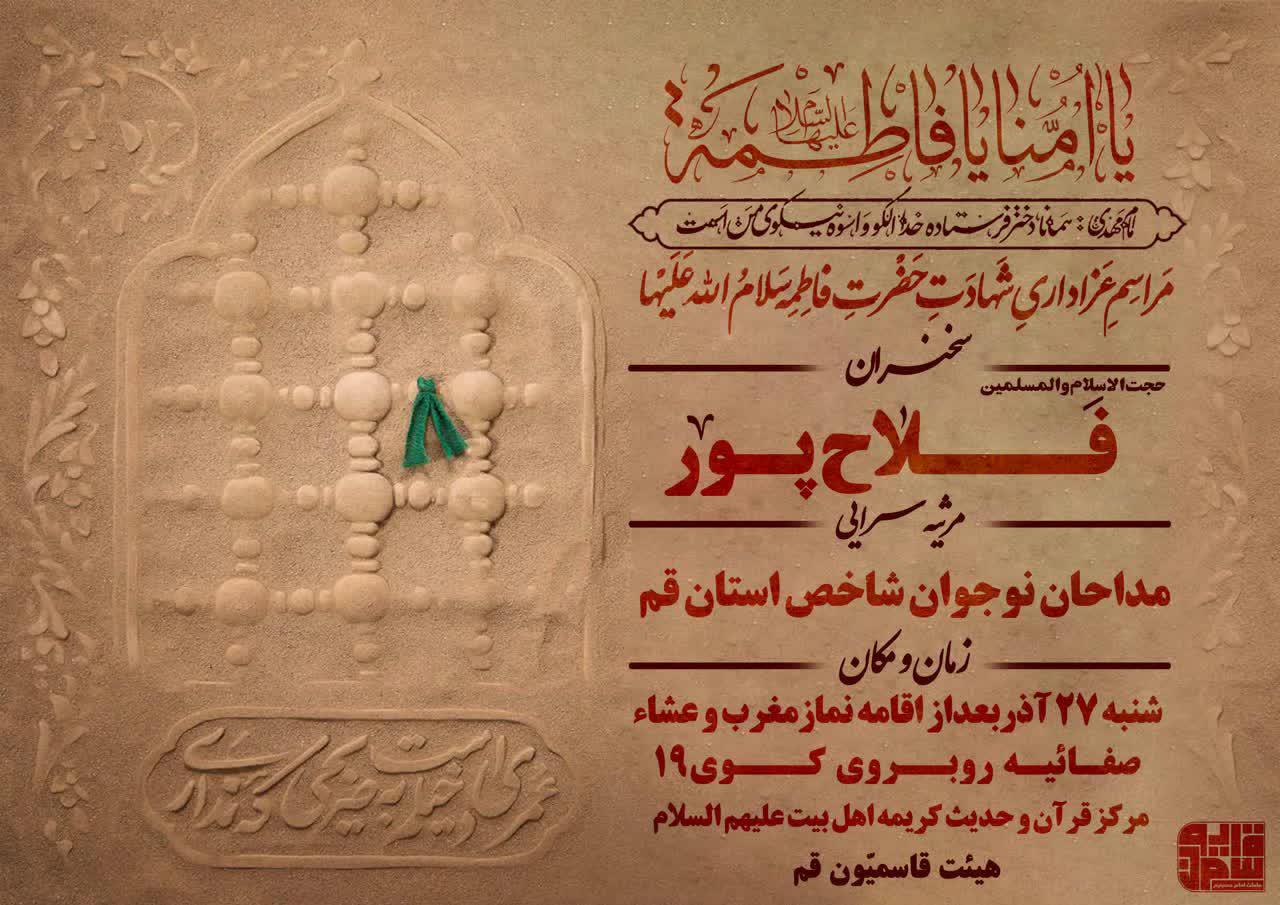 یا اُمَّنا یا فاطِمَه علیها السَّلام
امام مهدی: همانا دختر فرستاده خدا الگو و اسوه نیکوی من است
مَراسِمِ عَزاداریِ شَهادَتِ حَضْرَتِ فاطِمِه سَلامُ الله عَلَیْها
سخنران
حجت الاسلام والمسلمین
فَلاح پور
مرثیه سرایی
مداحان نوجوان شاخص استان قم
زمان و مکان
شنبه ۲۷ آذر بعد از اقامه نماز مغرب و عشاء
صفائیه روبروی کوی ۱۹
مرکز قرآن و حدیث کریمه اهل بیت علیهم السلام
هیئت قاسمیّون قم
عمری است خیاله به ضریحی که نداری